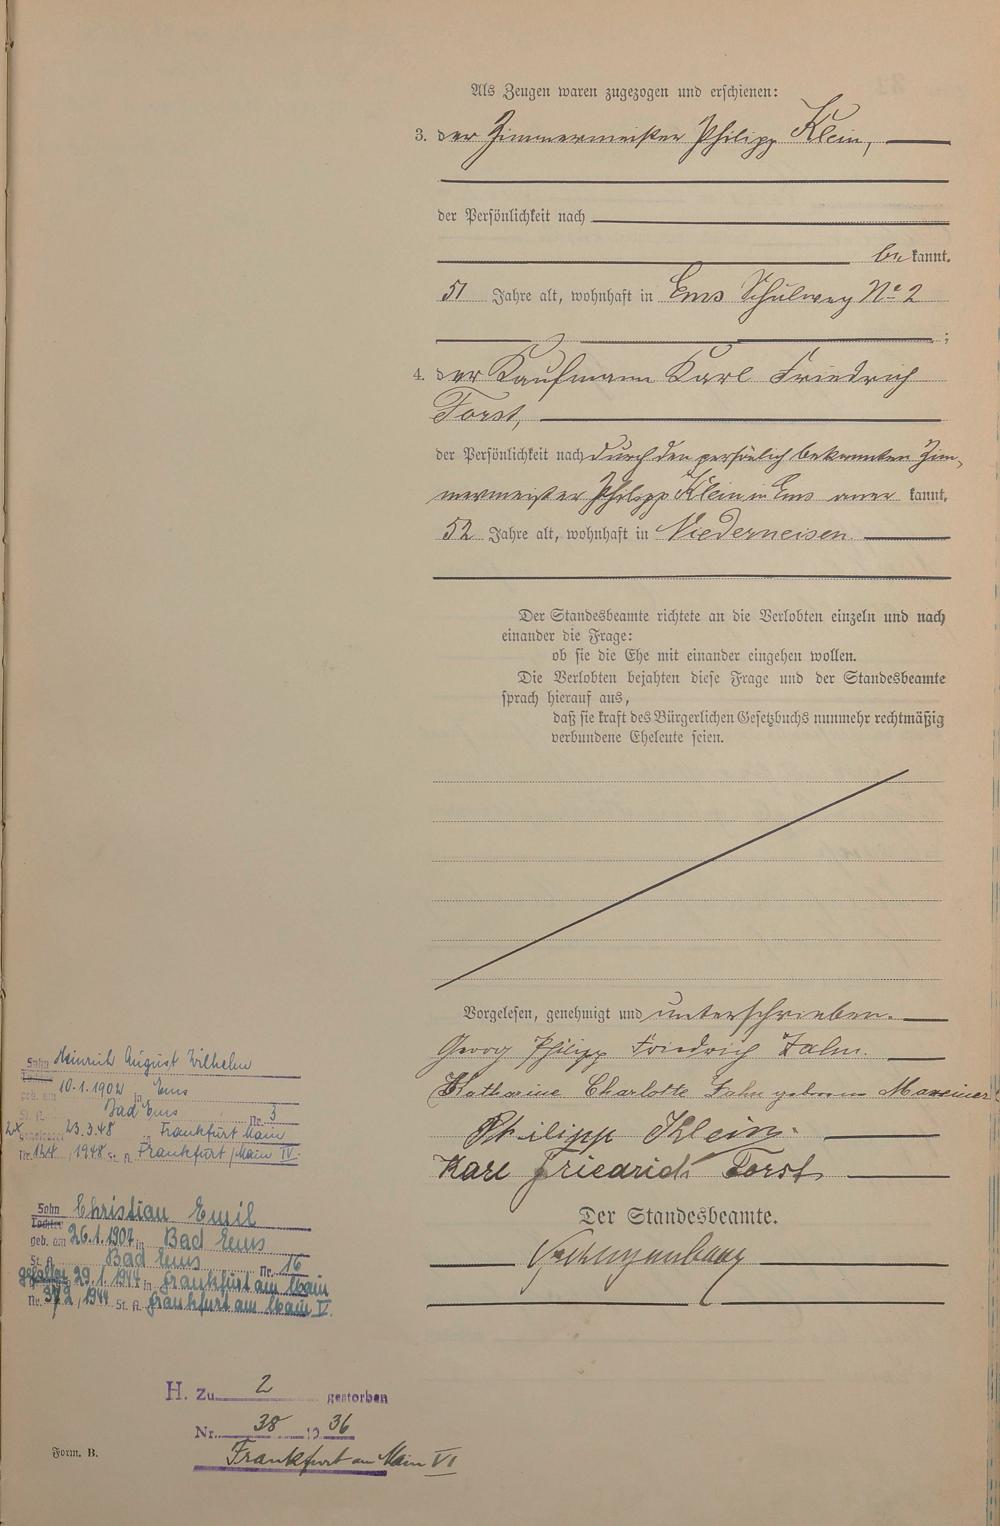 Als Zeugen waren zugezogen und erschienen:
3. der Zimmermeister Philipp Klein,
der Persönlichkeit nach
be kannt.
51 Jahre alt, wohnhaft in Ems Schulweg No 2
;
4. der Kaufmann Karl Friedrich
Forst,
der Persönlichkeit nach durch den persönlich bekannten Zim-
mermeister Philipp Klein in Ems aner kannt.
52 Jahre alt, wohnhaft in Niederneisen
Der Standesbeamte richtete an die Verlobten einzeln und nach
einander die Frage:
ob sie die Ehe mit einander eingehen wollen.
Die Verlobten bejahten diese Frage und der Standesbeamte
sprach hierauf aus,
daß sie kraft des Bürgerlichen Gesetzbuchs nunmehr rechtmäßig
verbundene Eheleute seien.
Vorgelesen, genehmigt und unterschrieben.
Georg Philipp Friedrich Zahn.
Katharine Charlotte Zahn geborene
Philipp Klein.
Karl Friedrich Forst
Der Standesbeamte.
Sohn Heinrich August Wilhelm
Tochter
geb. am 10.1.1902 in Ems
St. A. Bad Ems Nr. 3
23.3.48 in Frankfurt Main
Nr. 124 / 1948 St. A. Frankfurt/Main IV.
Sohn Christian Emil
Tochter
geb. am 26.1.1907 in Bad Ems
St. A. Bad Ems Nr. 16
gefallen 29.1.1944 in Frankfurt am Main
Nr. /1944 St. A. Frankfurt am Main V.
H. Zu 2 gestorben
Nr. 38 19 36
Frankfurt am Main VI
Form. B.